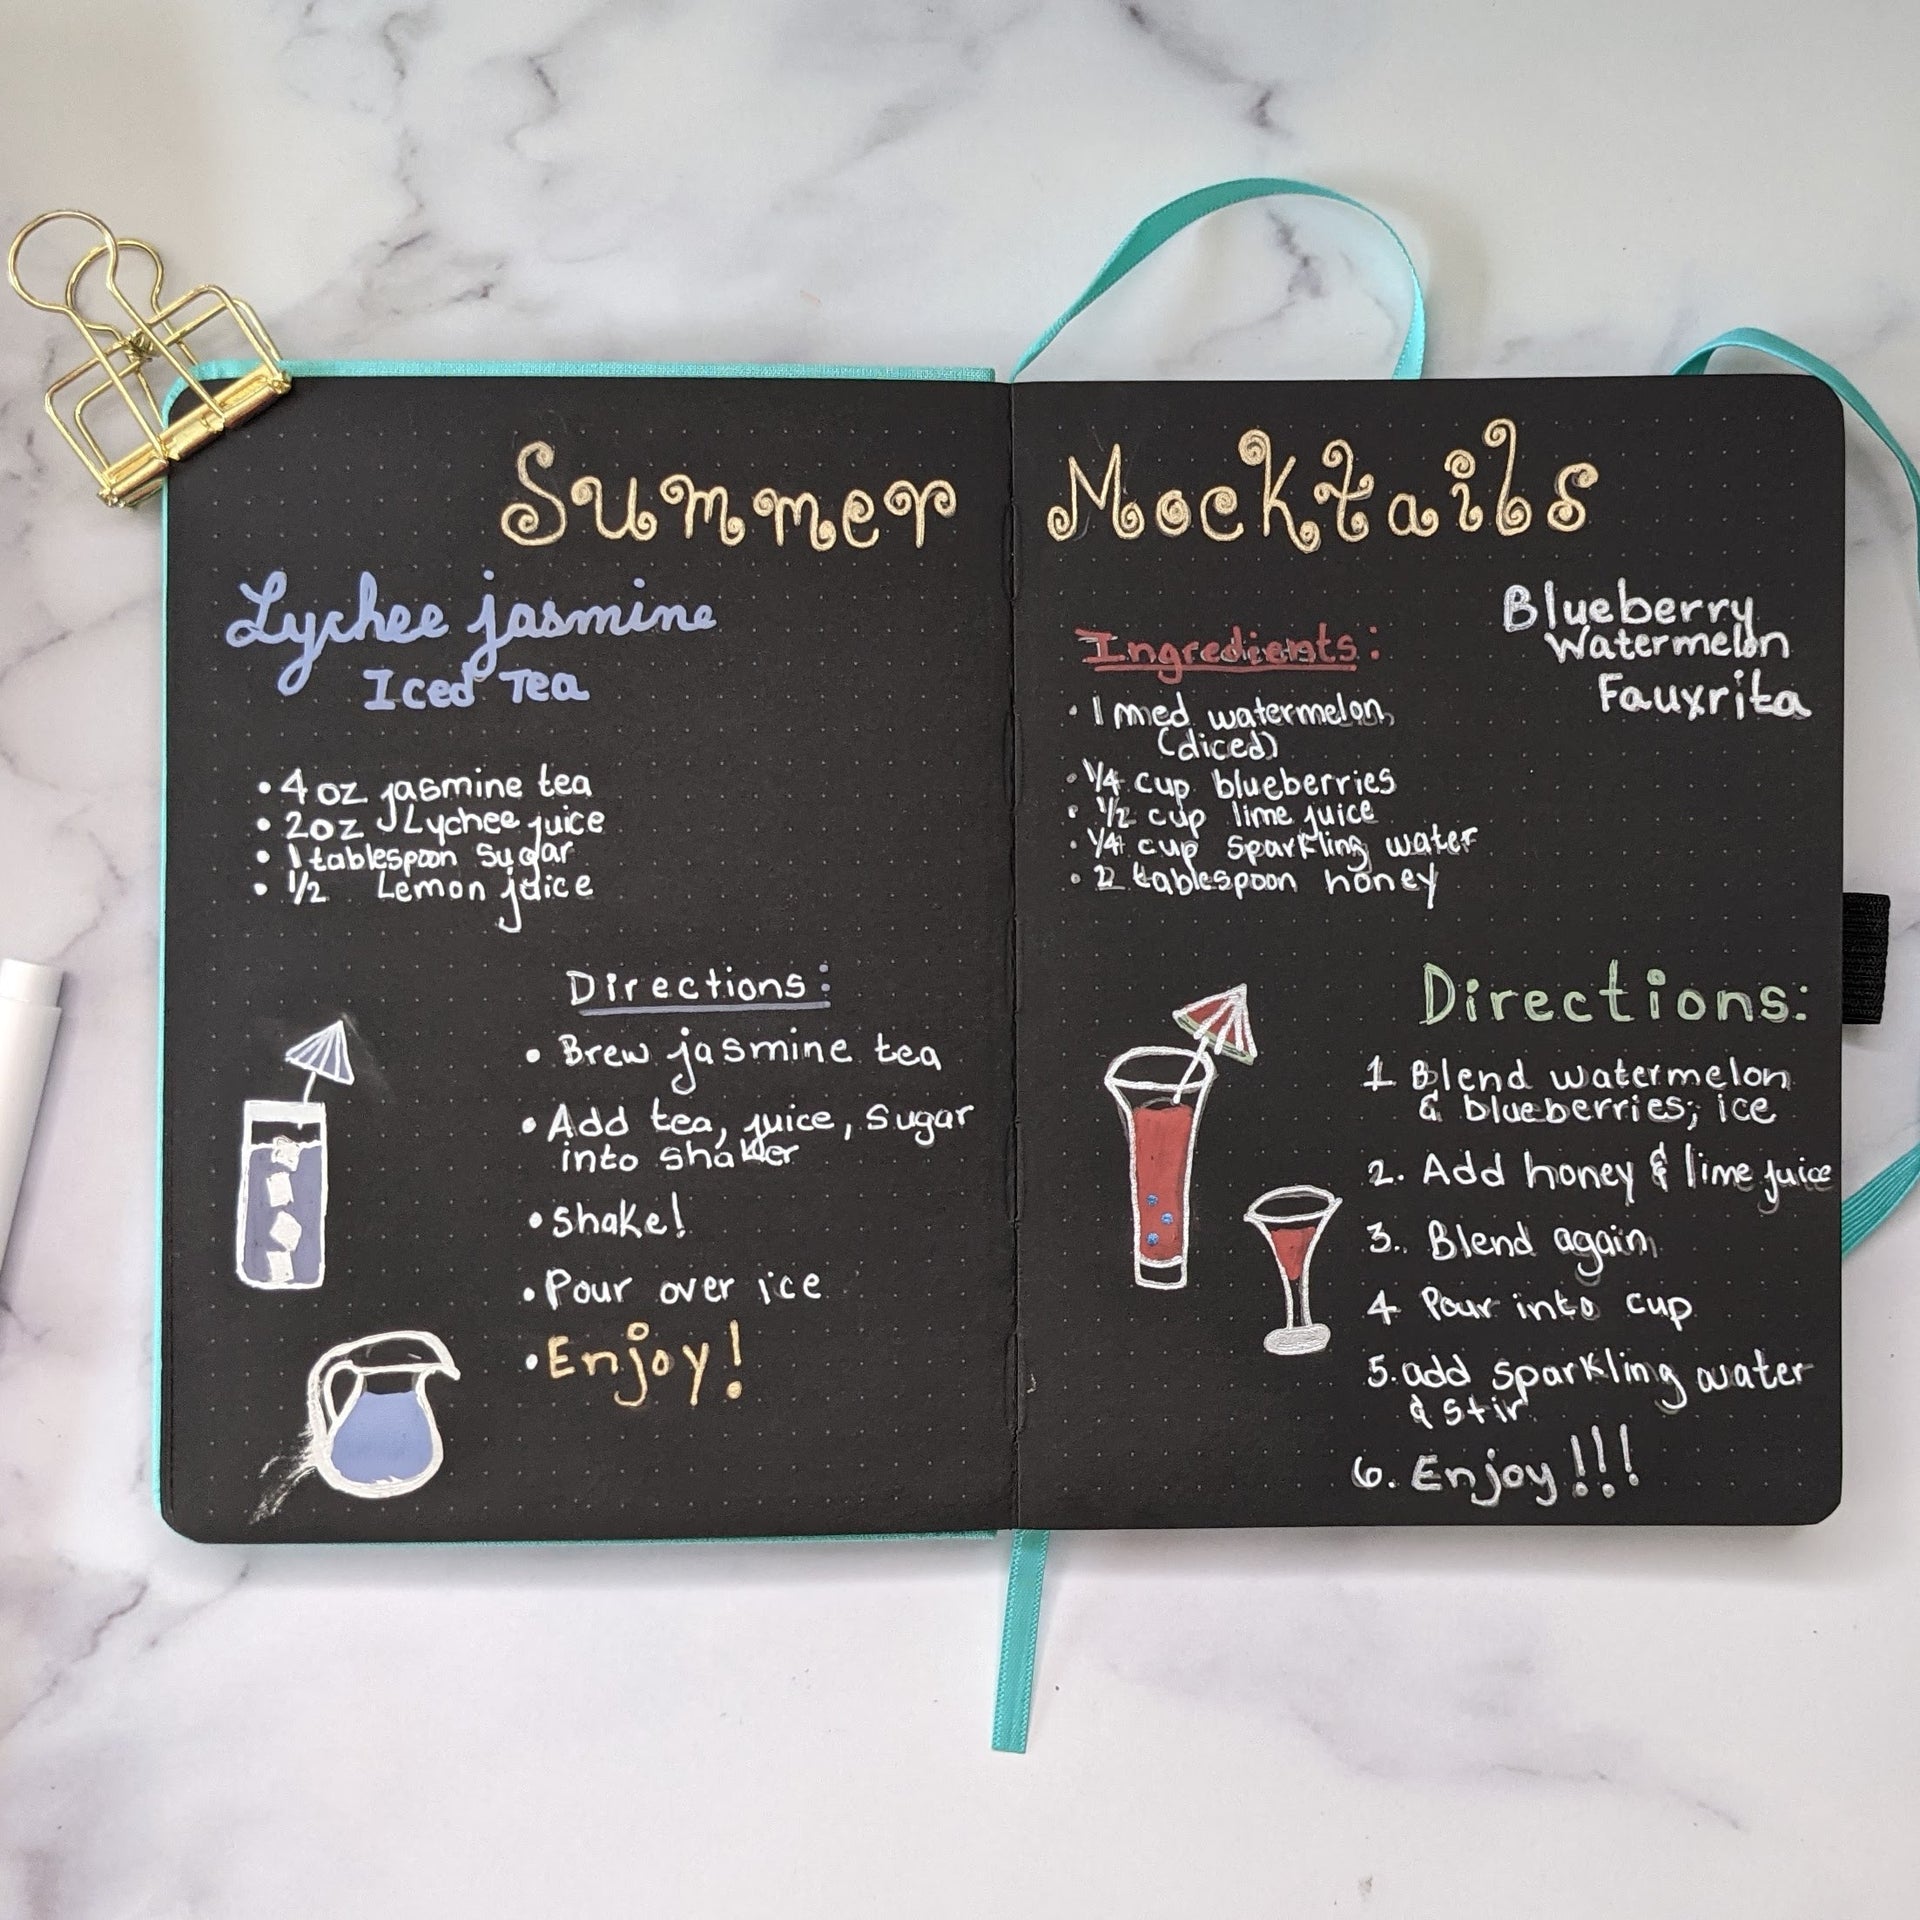 Summer
Lychee jasmine
Iced Tea
• 4 oz jasmine tea
• 2oz Lychee juice
• 1 tablespoon Sugar
• 1/2 Lemon juice
Directions:
• Brew jasmine tea
• Add tea, juice, sugar
into shaker
• shake!
• Pour over ice
• Enjoy!
Mocktails
Blueberry
Watermelon
Fauxrita
Ingredients:
• 1 med watermelon
(diced)
• 1/4 cup blueberries
• 1/2 cup lime juice
• 1/4 cup sparkling water
• 2 tablespoon honey
Directions:
1 Blend watermelon
& blueberries, ice
2. Add honey & lime juice
3. Blend again
4 Pour into cup
5. add sparkling water
& stir
6. Enjoy!!!